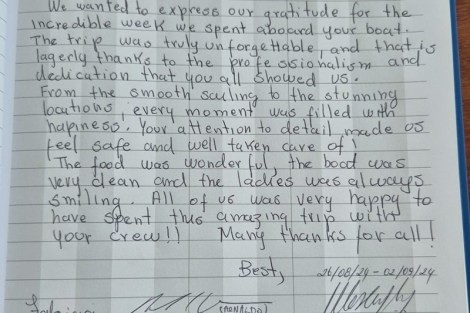 We wanted to express our gratitude for the
incredible week we spent aboard your boat.
The trip was truly unforgettable, and that is
lagerly thanks to the professionalism and
dedication that you all showed us.
From the smooth sailing to the stunning
locations, every moment was filled with
hapiness. Your attention to detail made us
feel safe and well taken care of!
The food was wonderful, the boad was
very clean and the ladies was always
smiling. All of us was very happy to
have spent this amazing trip with
your crew!! Many thanks for all!
Best,
26/08/24 - 02/09/24